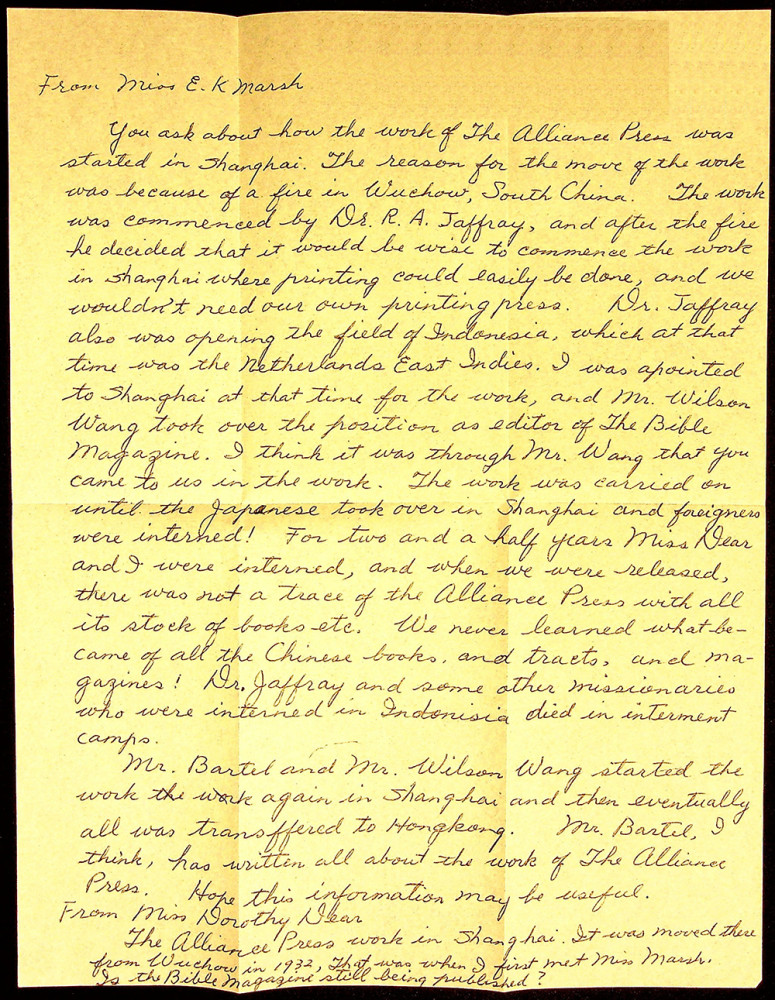 From Miss E. K Marsh
You ask about how the work of The Alliance Press was
started in Shanghai. The reason for the move of the work
was because of a fire in Wuchow, South China. The work
was commenced by Dr. R. A. Jaffray, and after the fire
he decided that it would be wise to commence the work
in Shanghai where printing could easily be done, and we
wouldn't need our own printing press. Dr. Jaffray
also was opening the field of Indonesia, which at that
time was the Netherlands East Indies. I was apointed
to Shanghai at that time for the work, and Mr. Wilson
Wang took over the position as editor of The Bible
Magazine. I think it was through Mr. Wang that you
came to us in the work. The work was carried on
until the Japanese took over in Shanghai and foreigners
were interned! For two and a half years Miss Dear
and I were interned, and when we were released,
there was not a trace of the Alliance Press with all
its stock of books etc. We never learned what be-
came of all the Chinese books, and tracts, and ma-
gazines! Dr. Jaffray and some other missionaries
who were interned in Indonisia died in interment
camps.
Mr. Bartel and Mr. Wilson Wang started the
work the work again in Shanghai and then eventually
all was transffered to Hongkong. Mr. Bartel, I
think, has written all about the work of The Alliance
Press. Hope this information may be useful.
From Miss Dorothy Dear
The Alliance Press work in Shanghai. It was moved there
from Wuchow in 1932, That was when I first met Miss Marsh.
Is the Bible Magazine still being published?